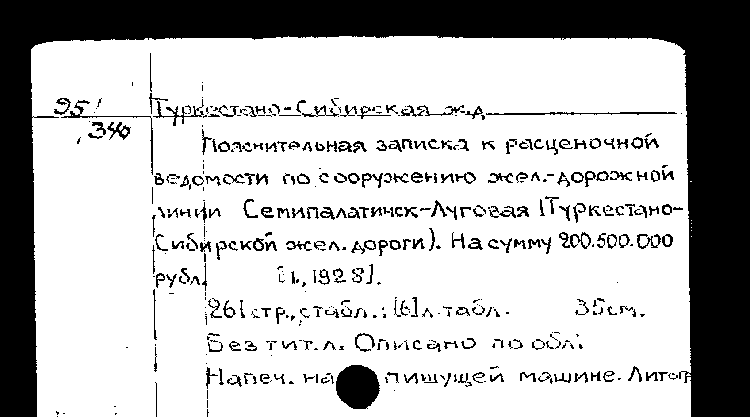 951 Туркестано-Сибирская ж.д
,340
Пояснительная записка к расценочной
ведомости по сооружению жел.-дорожной
линии Семипалатинск-Луговая (Туркестано-
Сибирской жел. дороги). На сумму 200.500.000
рубл. [1, 1928].
261 стр., с табл.; [6] л. табл. 35см.
Без тит. л. Описано по обл.
Напеч. на пишущей машине. Литогр